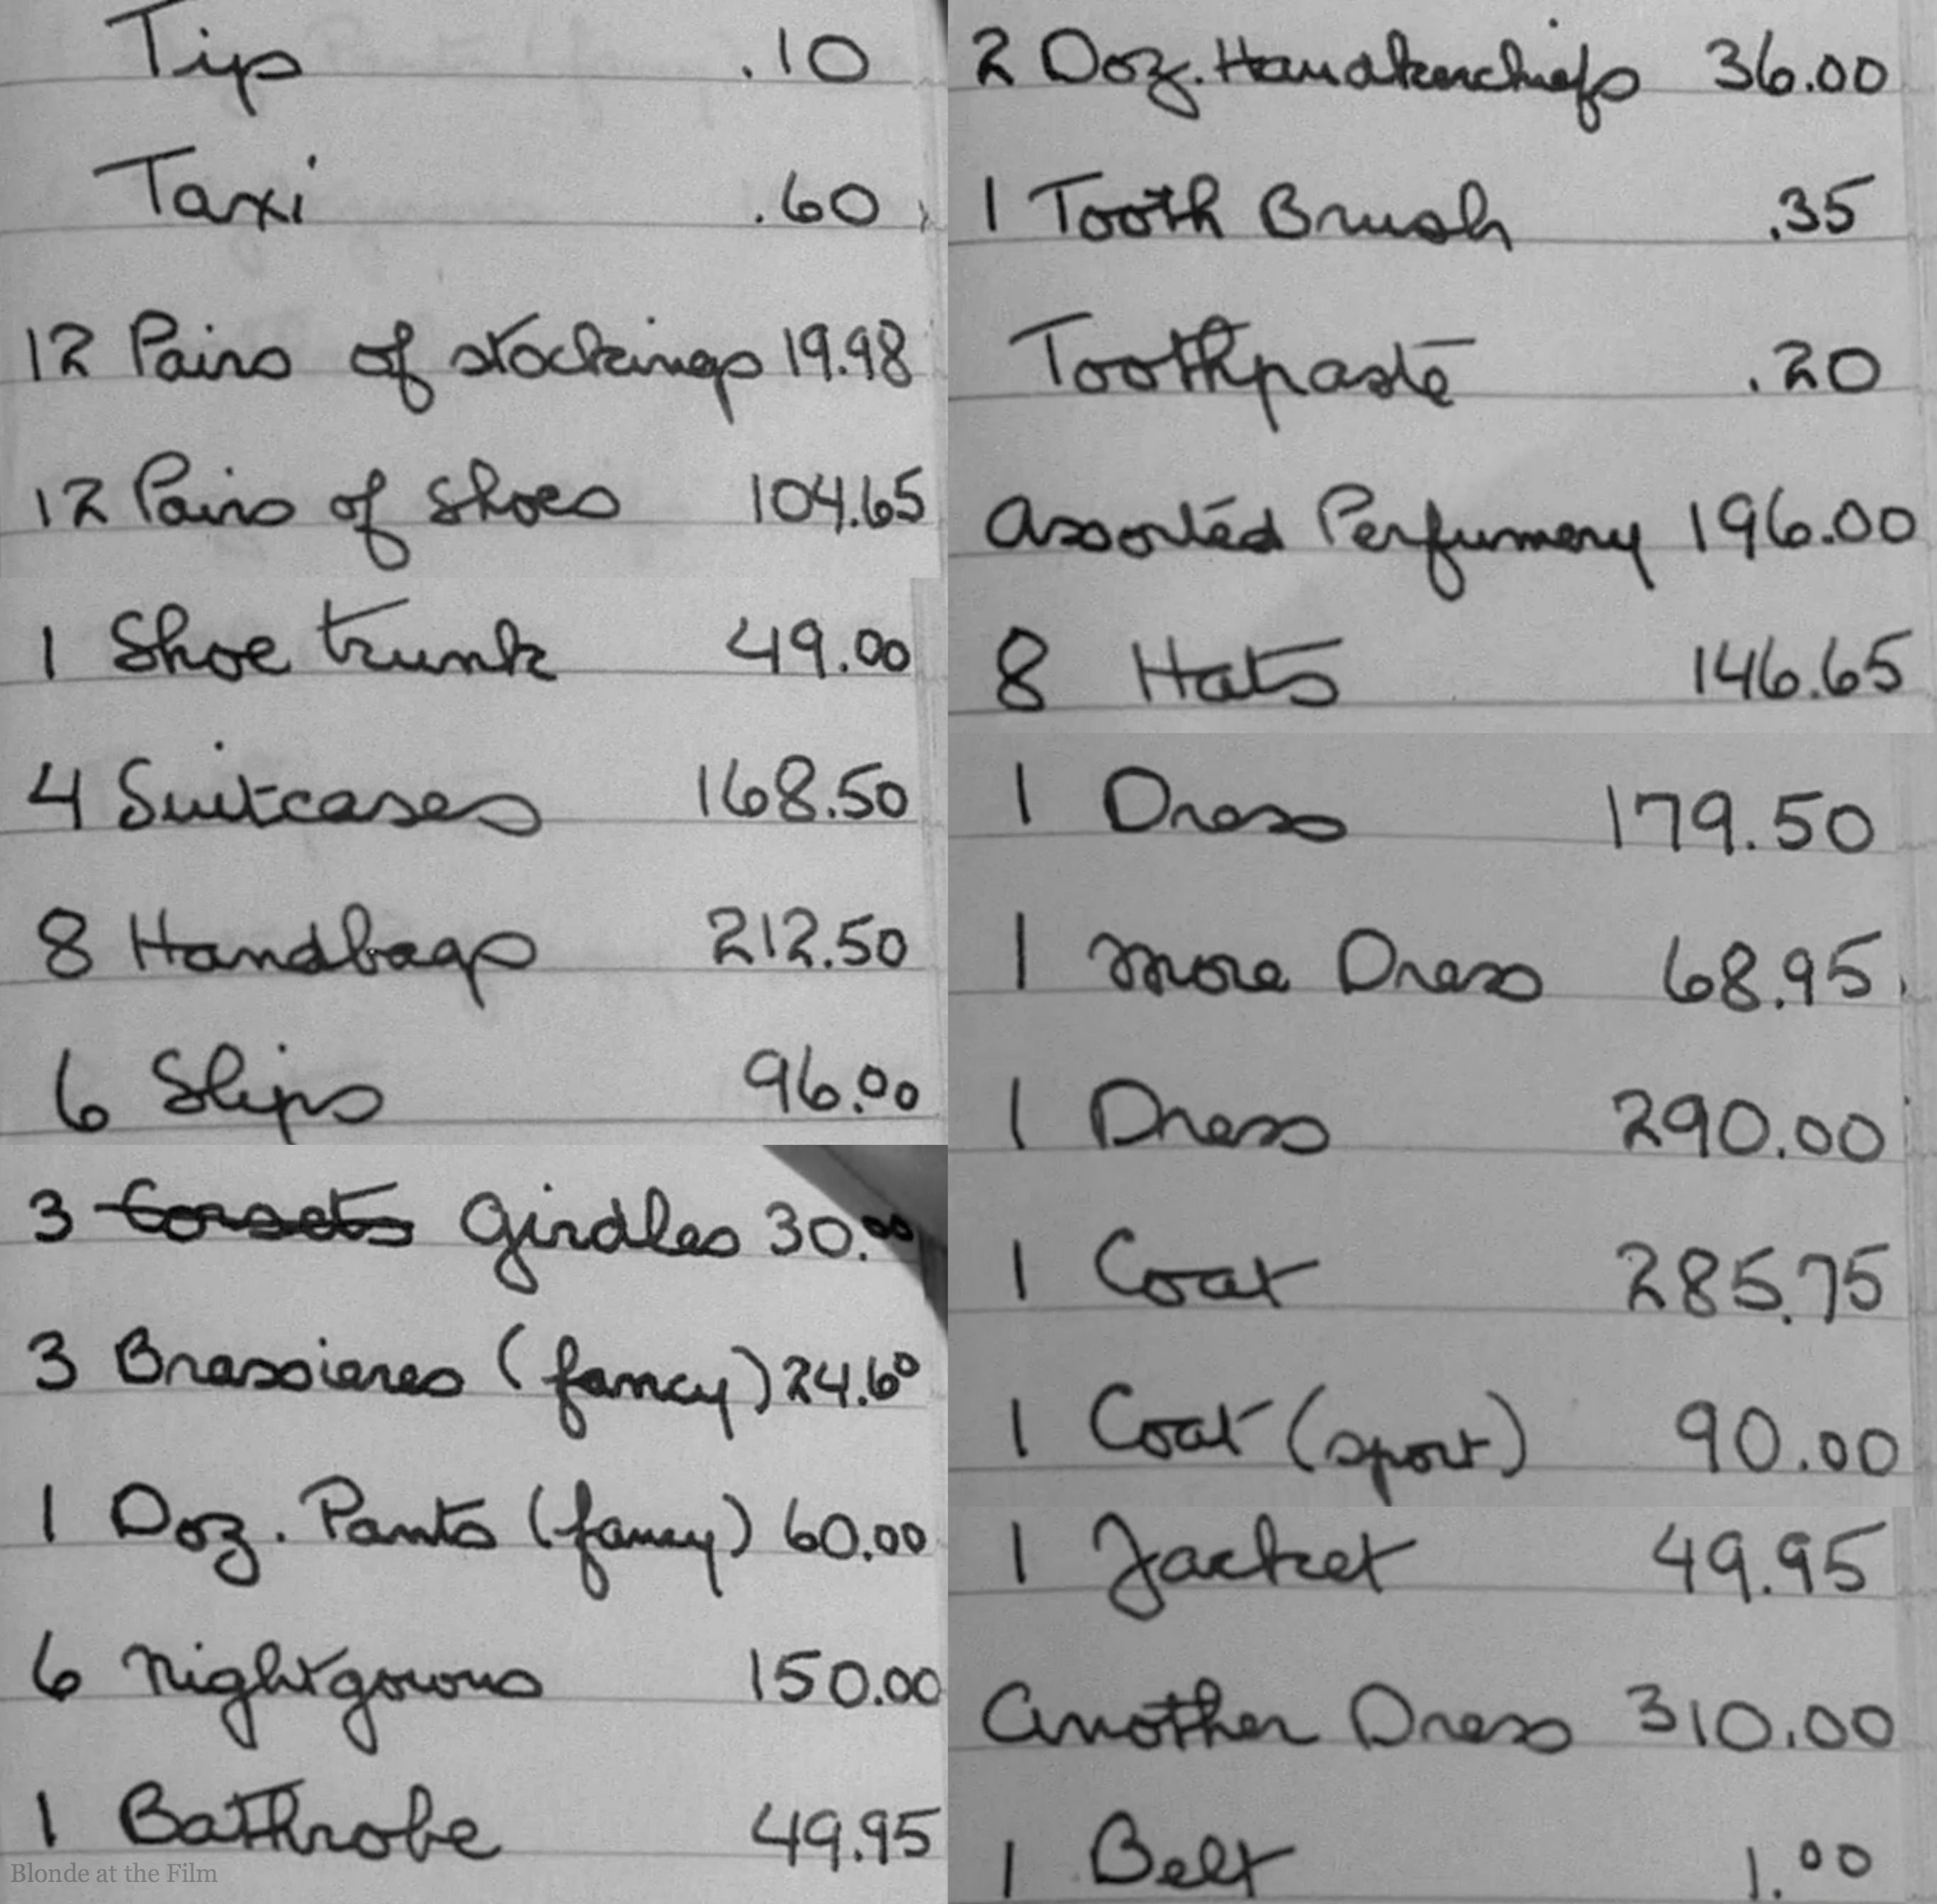 Tip .10
Taxi .60
12 Pairs of stockings 19.98
12 Pairs of Shoes 104.65
1 Shoe trunk 49.00
4 Suitcases 168.50
8 Handbags 212.50
6 Slips 96.00
3 Corsets Girdles 30.00
3 Brassieres (fancy) 24.60
1 Doz. Pants (fancy) 60.00
6 Nightgowns 150.00
1 Bathrobe 49.95
Blonde at the Film
2 Doz. Handkerchiefs 36.00
1 Tooth Brush .35
Toothpaste .20
Assorted Perfumery 196.00
8 Hats 146.65
1 Dress 179.50
1 more Dress 68.95
1 Dress 290.00
1 Coat 285.75
1 Coat (sport) 90.00
1 Jacket 49.95
Another Dress 310.00
1 Belt 1.00